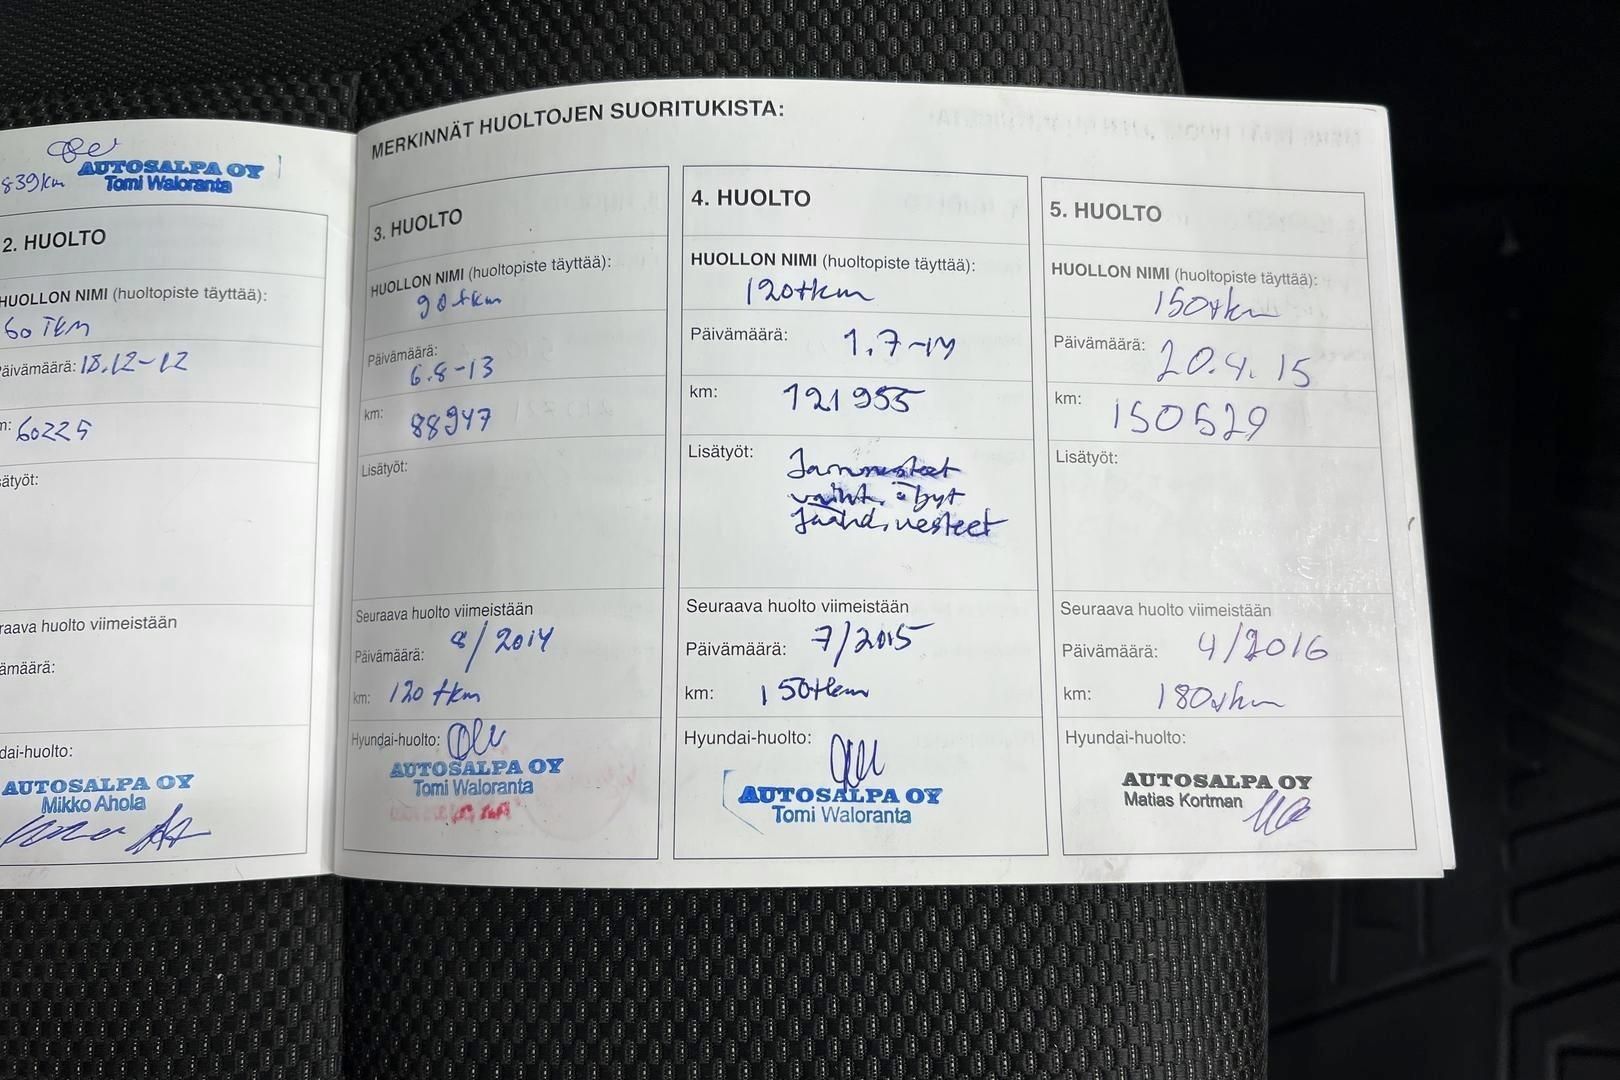 839km AUTOSALPA OY
Tomi Waloranta
2. HUOLTO
HUOLLON NIMI (huoltopiste täyttää):
60 TKM
äivämäärä: 18.12-12
m: 60225
sätyöt:
raava huolto viimeistään
ämäärä:
dai-huolto:
AUTOSALPA OY
Mikko Ahola
MERKINNÄT HUOLTOJEN SUORITUKISTA:
3. HUOLTO
HUOLLON NIMI (huoltopiste täyttää):
90 tkm
Päivämäärä:
6.8-13
km: 88947
Lisätyöt:
Seuraava huolto viimeistään
Päivämäärä: 8/2014
km: 120 tkm
Hyundai-huolto:
AUTOSALPA OY
Tomi Waloranta
4. HUOLTO
HUOLLON NIMI (huoltopiste täyttää):
120tkm
Päivämäärä: 1.7-14
km: 121955
Lisätyöt: Jarrunesteet
vaiht.
Jäähd.nesteet
Seuraava huolto viimeistään
Päivämäärä: 7/2015
km: 150tkm
Hyundai-huolto:
AUTOSALPA OY
Tomi Waloranta
5. HUOLTO
HUOLLON NIMI (huoltopiste täyttää):
150tkm
Päivämäärä: 20.4.15
km: 150529
Lisätyöt:
Seuraava huolto viimeistään
Päivämäärä: 4/2016
km: 180tkm
Hyundai-huolto:
AUTOSALPA OY
Matias Kortman